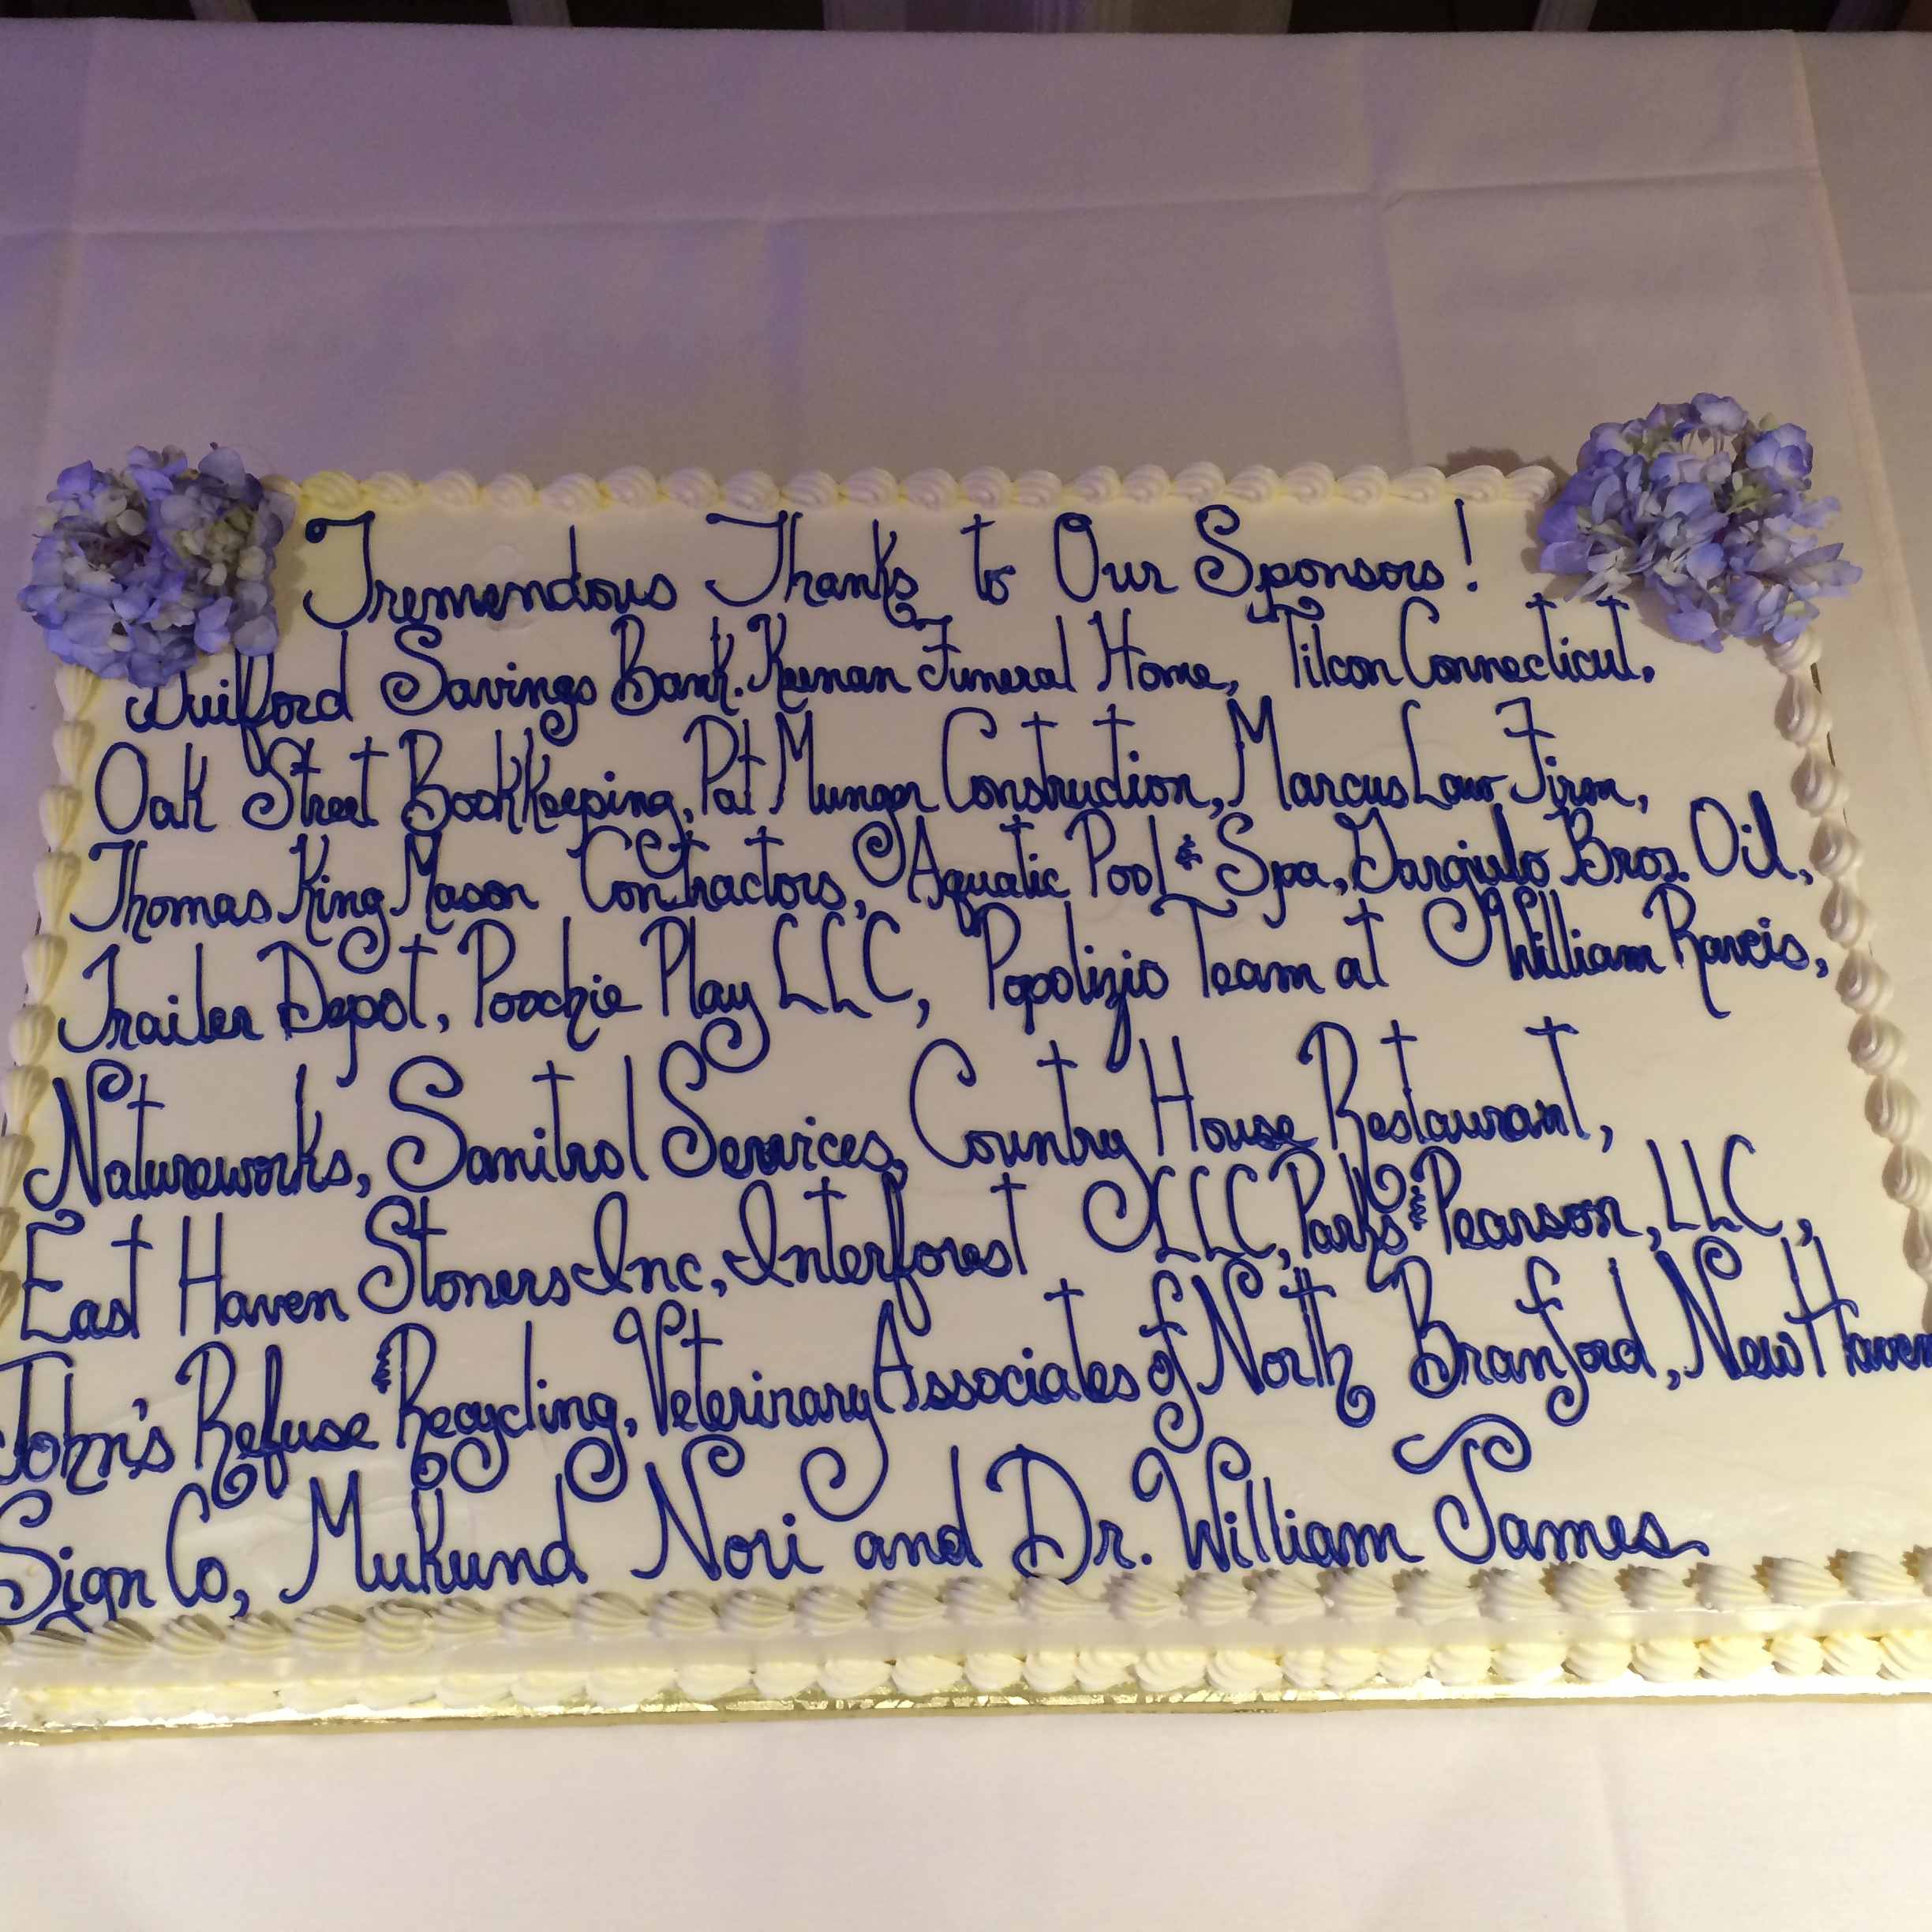 Tremendous Thanks to Our Sponsors!
Guilford Savings Bank. Keenan Funeral Home, Tilcon Connecticut,
Oak Street Bookkeeping, Pat Munger Construction, Marcus Law Firm,
Thomas King Mason Contractors, Aquatic Pool & Spa, Gargiulo Bros. Oil,
Trailer Depot, Poochie Play LLC, Popolizio Team at William Raveis,
Natureworks, Sanitrol Services, Country House Restaurant,
East Haven Stoners Inc, Interforest LLC, Parks & Pearson, LLC,
John's Refuse & Recycling, Veterinary Associates of North Branford, New Haven
Sign Co, Mukund Nori and Dr. William James